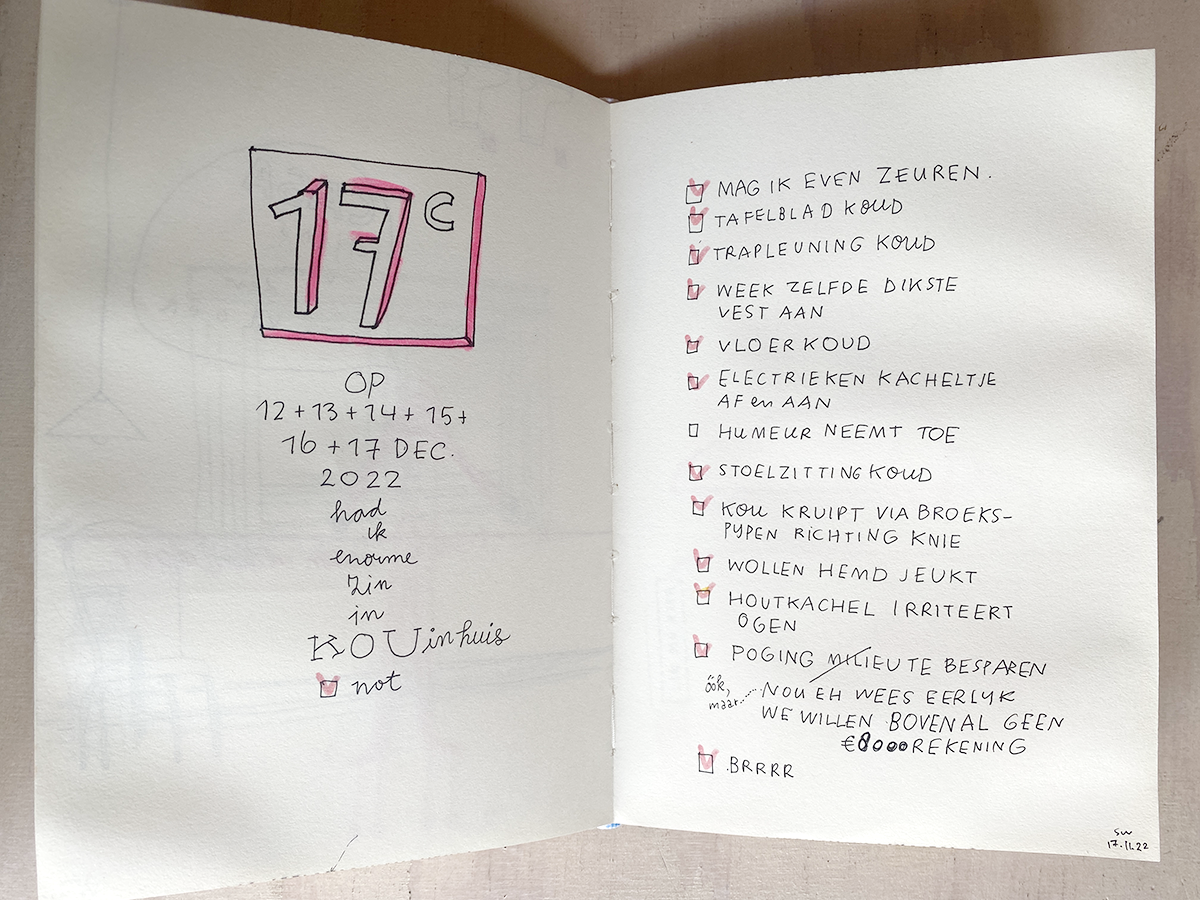 17 C
OP
12 + 13 + 14 + 15 +
16 + 17 DEC.
2022
had
ik
enorme
zin
in
KOU in huis
not
MAG IK EVEN ZEUREN.
TAFELBLAD KOUD
TRAPLEUNING KOUD
WEEK ZELFDE DIKSTE
VEST AAN
VLOER KOUD
ELECTRIEKEN KACHELTJE
AF en AAN
HUMEUR NEEMT TOE
STOELZITTING KOUD
KOU KRUIPT VIA BROEKS-
PYPEN RICHTING KNIE
WOLLEN HEMD JEUKT
HOUTKACHEL IRRITEERT
OGEN
POGING MILIEU TE BESPAREN
óók, maar... NOU EH WEES EERLYK
WE WILLEN BOVENAL GEEN
€8000 REKENING
.BRRRR
SW
17.11.22